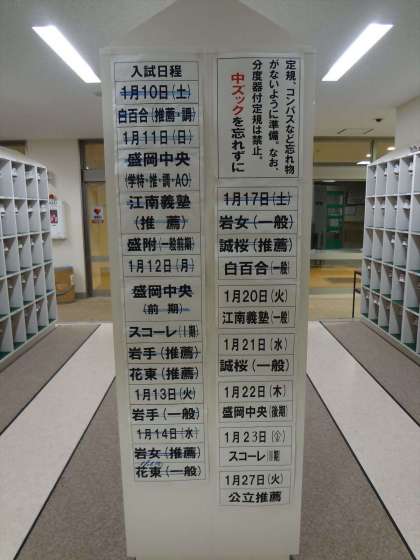 入試日程
1月10日(土)
白百合(推薦・調)
1月11日(日)
盛岡中央
(学特・推・調・AO)
江南義塾
(推薦)
盛附(一般前期)
1月12日(月)
盛岡中央
(前期)
スコーレ(Ⅰ期)
岩手(推薦)
花東(推薦)
1月13日(火)
岩手(一般)
1月14日(水)
岩女(推薦)
花東(一般)
定規、コンパスなど忘れ物
がないように準備。なお、
分度器付定規は禁止。
中ズックを忘れずに
1月17日(土)
岩女(一般)
誠桜(推薦)
白百合(一般)
1月20日(火)
江南義塾(一般)
1月21日(水)
誠桜(一般)
1月22日(木)
盛岡中央(後期)
1月23日(金)
スコーレ(Ⅱ期)
1月27日(火)
公立推薦